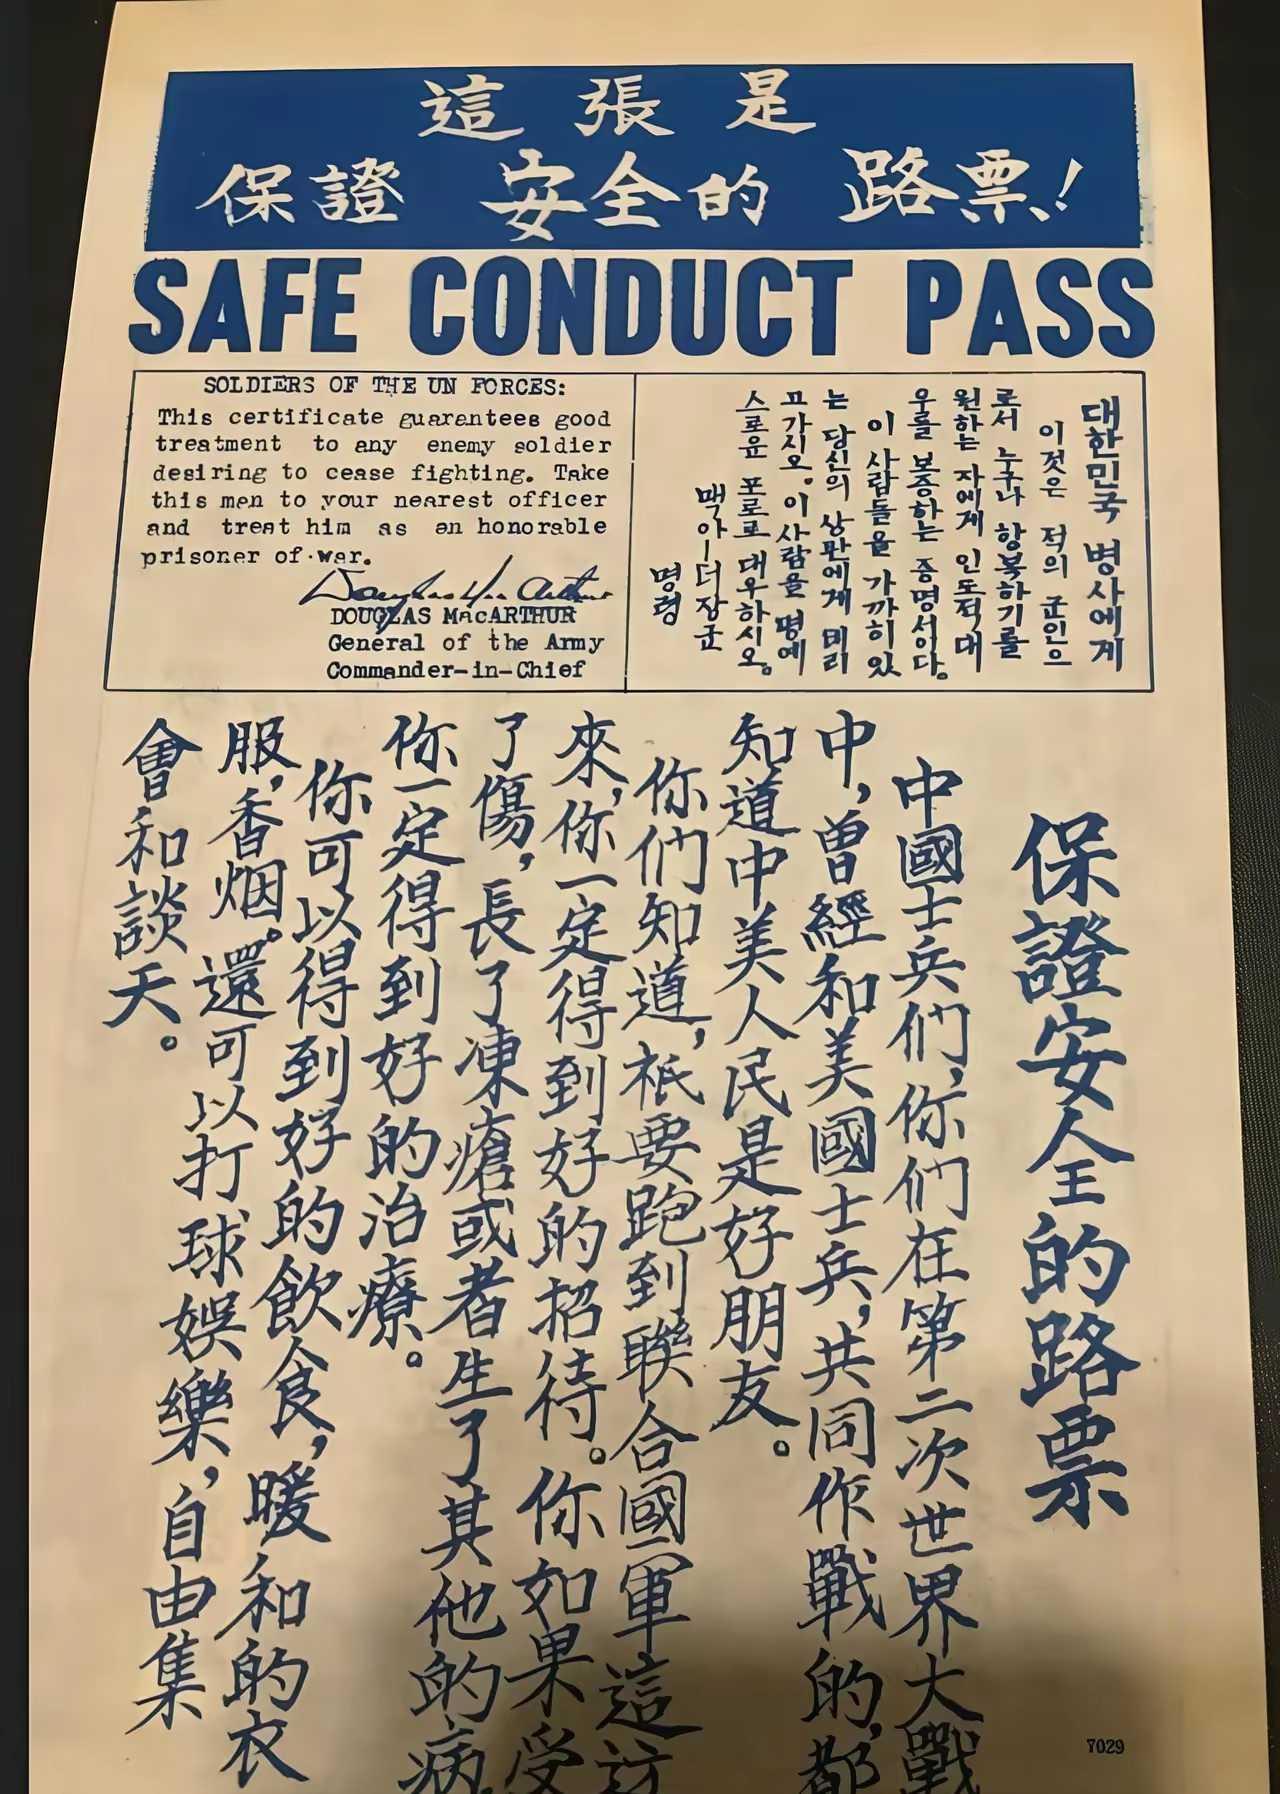 這張是
保證 安全的 路票!
SAFE CONDUCT PASS
SOLDIERS OF THE UN FORCES:
This certificate guarantees good
treatment to any enemy soldier
desiring to cease fighting. Take
this men to your nearest officer
and treat him as an honorable
prisoner of war.
Douglas MacArthur
DOUGLAS MacARTHUR
General of the Army
Commander-in-Chief
대한민국 병사에게
이것은 적의 군인으
로서 누구나 항복하기를
원하는 자에게 인도적대
우를 보증하는 증명서이다.
이 사람들을 가까히 있
는 당신의 상관에게 데리
고 가시오. 이 사람을 명예
스로운 포로로 대우하시오.
맥아-더장군
명령
保證安全的路票
中國士兵們,你們在第二次世界大戰
中,曾經和美國士兵,共同作戰的,都
知道中美人民是好朋友。
你們知道,祇要跑到聯合國軍這訪
來,你一定得到好的招待。你如果受
了傷,長了凍瘡或者生了其他的病,
你一定得到好的治療。
你可以得到好的飲食,暖和的衣
服,香烟。還可以打球娛樂,自由集
會和談天。
7029